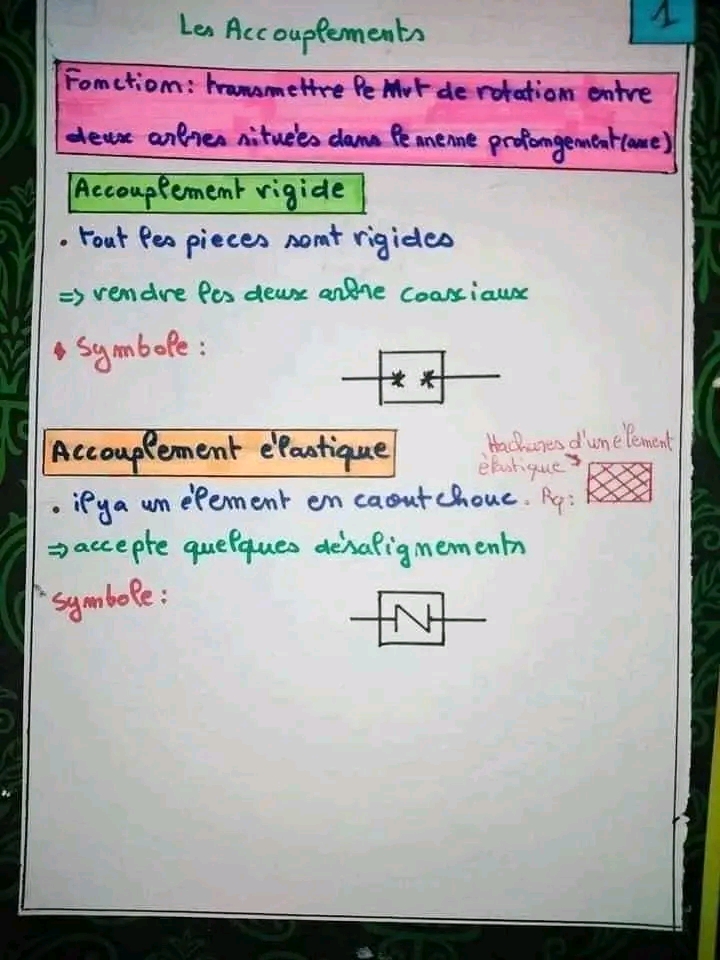 1
Les Accouplements
Fonction: transmettre le Mvt de rotation entre
deux arbres situées dans le meme prolongement (axe)
Accouplement rigide
• tout les pieces sont rigides
=> rendre les deux arbre coaxiaux
• Symbole :
Accouplement élastique
Hachures d'un élement
élastique
• il ya un élement en caoutchouc. Rq:
=> accepte quelques désalignements
Symbole :